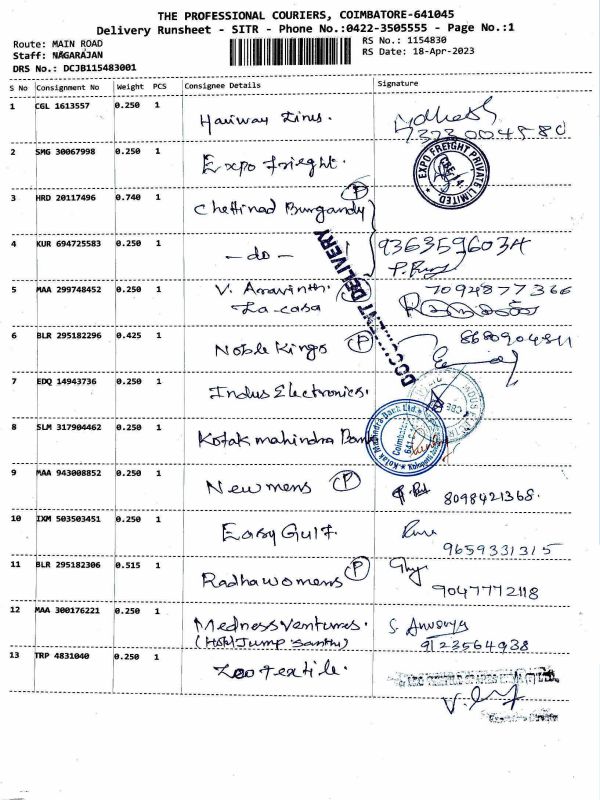 THE PROFESSIONAL COURIERS, COIMBATORE-641045
Delivery Runsheet - SITR - Phone No.:0422-3505555 - Page No.:1
Route: MAIN ROAD
RS No.: 1154830
Staff: NAGARAJAN
RS Date: 18-Apr-2023
DRS No.: DCJB115483001
S No Consignment No Weight PCS Consignee Details Signature
1 CGL 1613557 0.250 1 Hariway Lines.
2 SMG 30067998 0.250 1 Expo freight.
EXPO FREIGHT PRIVATE LIMITED.
3 HRD 20117496 0.740 1 Chettinad Burgandy P
4 KUR 694725583 0.250 1 - do - 9363596034
DOCUMENT DELIVERY
5 MAA 299748452 0.250 1 V. Aravinth. 7094877366
La-casa
6 BLR 295182296 0.425 1 Noble Kings P
7 EDQ 14943736 0.250 1 Indus Electronics.
8 SLM 317904462 0.250 1 Kotak mahindra Bank
Kotak Mahindra Bank Ltd.
Coimbatore
9 MAA 943008852 0.250 1 New mens P 8098421368.
10 IXM 503503451 0.250 1 Easy Gulf. 9659331315
11 BLR 295182306 0.515 1 Radha womens P 9047772118
12 MAA 300176221 0.250 1 Medness ventures. S. Anusuya
(Hotel Jump Santhu) 9123564938
13 TRP 4831040 0.250 1 Zoo textile.